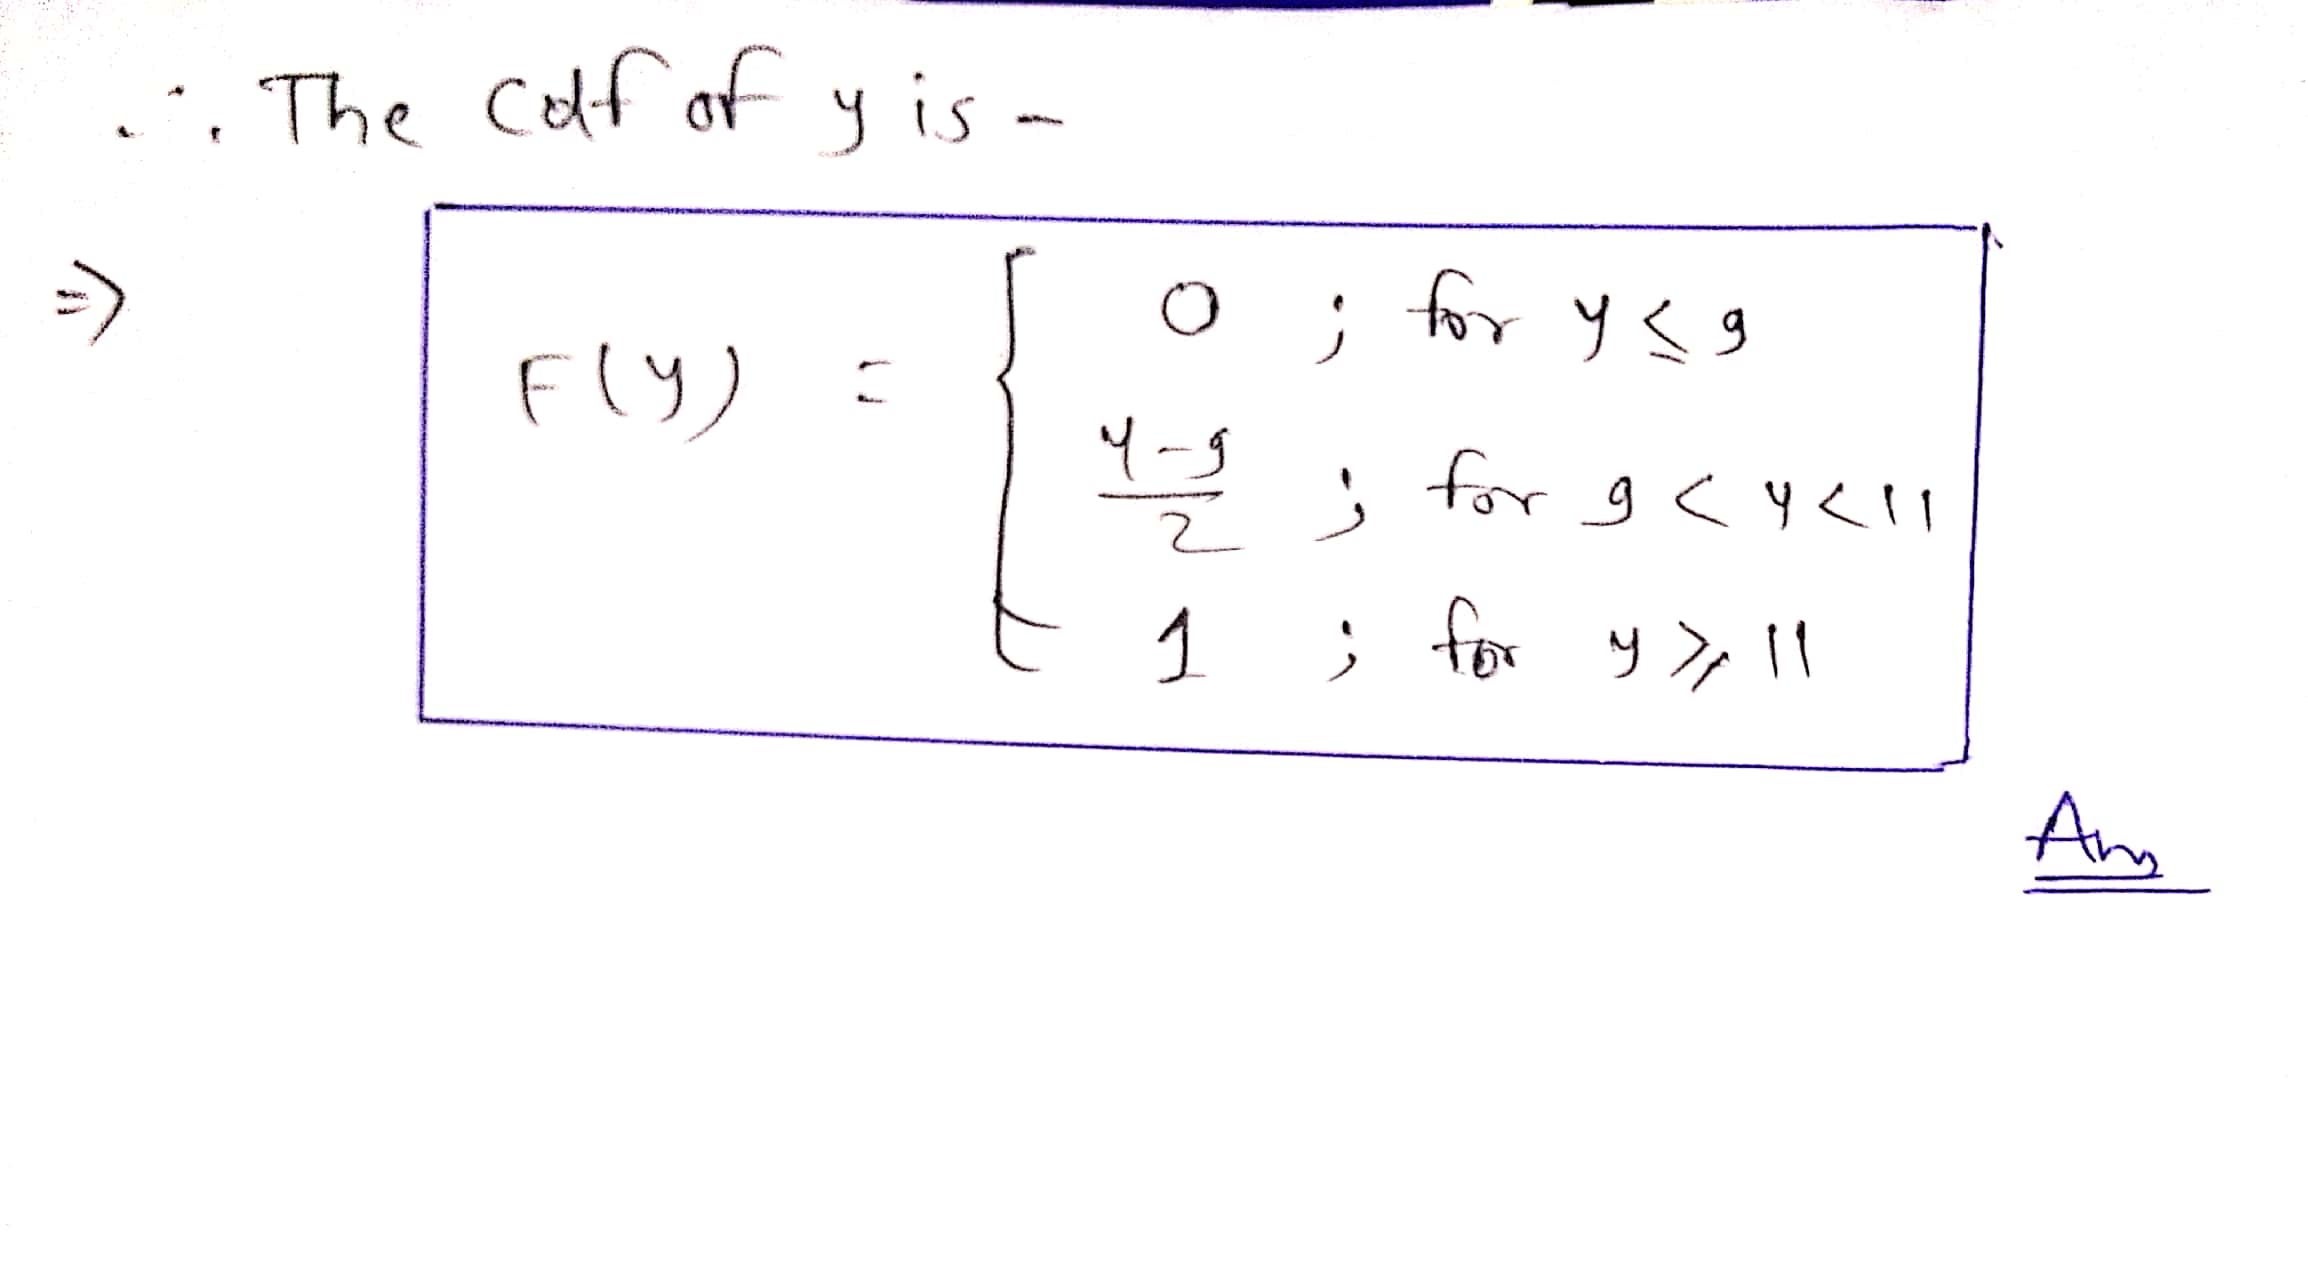 ∴ The cdf of y is -
⇒ F(y) = { 0 ; for y ≤ 9
y-9/2 ; for 9 < y < 11
1 ; for y ≥ 11
Ans